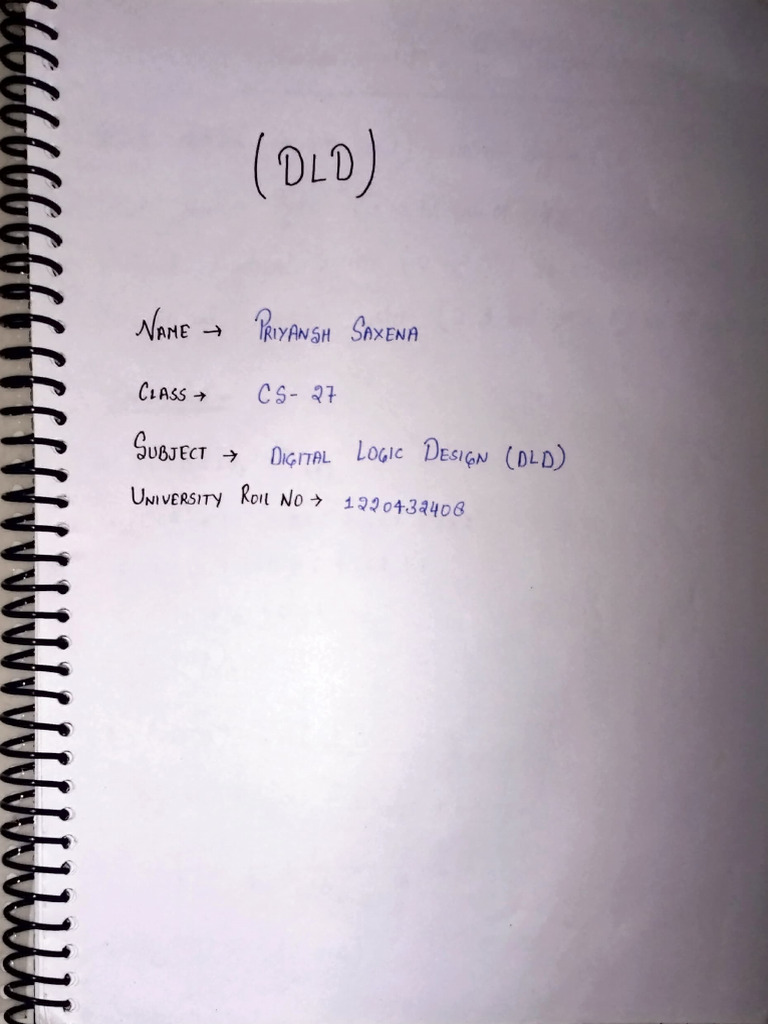 (DLD)
NAME → PRIYANSH SAXENA
CLASS → CS- 27
SUBJECT → DIGITAL LOGIC DESIGN (DLD)
UNIVERSITY ROLL NO → 1220432408